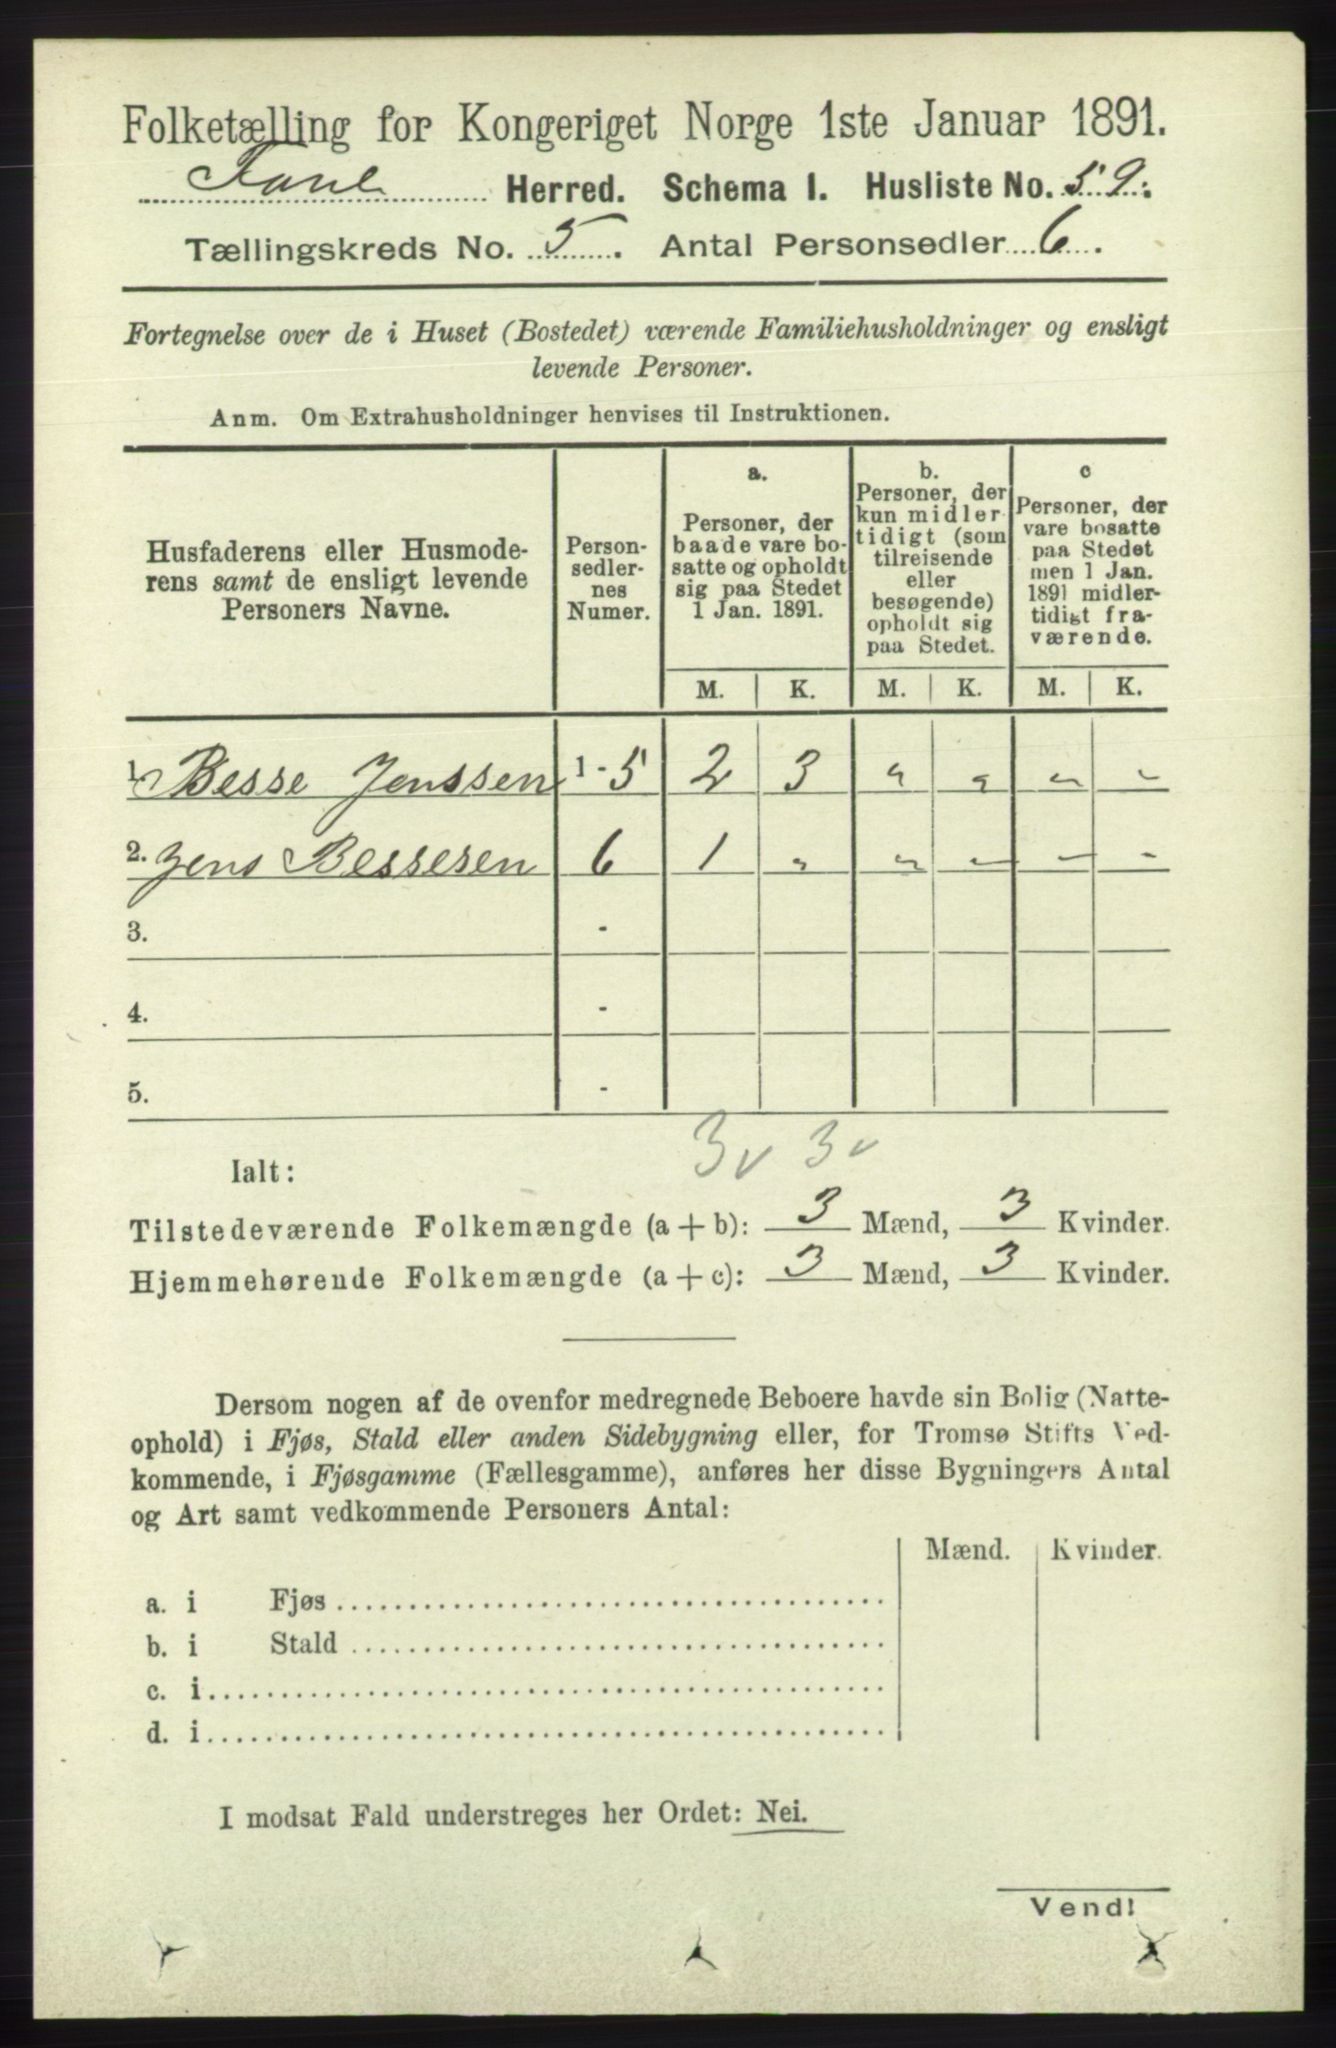 Folketælling for Kongeriget Norge 1ste Januar 1891.
Herred. Schema I. Husliste No. 59.
Tællingskreds No. 5. Antal Personsedler 6.
Fortegnelse over de i Huset (Bostedet) værende Familiehusholdninger og ensligt
levende Personer.
Anm. Om Extrahusholdninger henvises til Instruktionen.
Husfaderens eller Husmode-
rens samt de ensligt levende
Personers Navne.
Person-
sedler-
nes
Numer.
a.
Personer, der
baade vare bo-
satte og opholdt
sig paa Stedet
1 Jan. 1891.
b.
Personer, der
kun midler
tidigt (som
tilreisende
eller
besøgende)
opholdt sig
paa Stedet.
c
Personer, der
vare bosatte
paa Stedet
men 1 Jan.
1891 midler-
tidigt fra-
værende.
M. K. M. K. M. K.
1. Besse Jenssen 1-5 2 3 " " " "
2. Jens Bessesen 6 1 " " " " "
3. -
4. -
5. -
3v 3v
Ialt:
Tilstedeværende Folkemængde (a + b): 3 Mænd, 3 Kvinder.
Hjemmehørende Folkemængde (a + c): 3 Mænd, 3 Kvinder.
Dersom nogen af de ovenfor medregnede Beboere havde sin Bolig (Natte-
ophold) i Fjøs, Stald eller anden Sidebygning eller, for Tromsø Stifts Ved-
kommende, i Fjøsgamme (Fællesgamme), anføres her disse Bygningers Antal
og Art samt vedkommende Personers Antal:
Mænd. Kvinder.
a. i Fjøs
b. i Stald
c. i
d. i
I modsat Fald understreges her Ordet: Nei.
Vend!